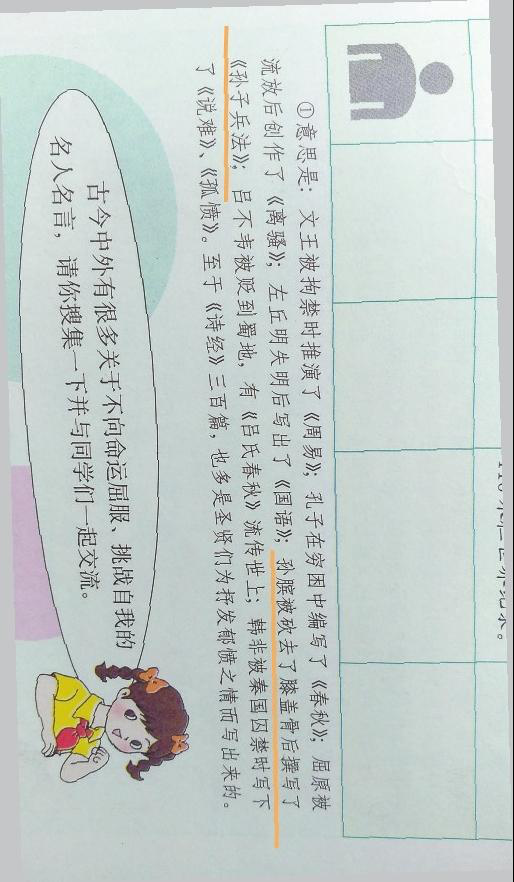 ①意思是：文王被拘禁时推演了《周易》；孔子在穷困中编写了《春秋》；屈原被
流放后创作了《离骚》；左丘明失明后写出了《国语》；孙膑被砍去了膝盖骨后撰写了
《孙子兵法》；吕不韦被贬到蜀地，有《吕氏春秋》流传世上；韩非被秦国囚禁时写下
了《说难》、《孤愤》。至于《诗经》三百篇，也多是圣贤们为抒发郁愤之情而写出来的。
古今中外有很多关于不向命运屈服、挑战自我的
名人名言，请你搜集一下并与同学们一起交流。